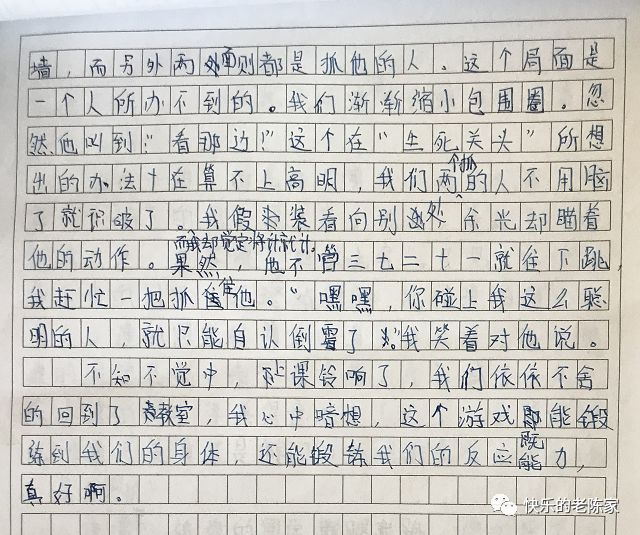 墙，而另外两面则都是抓他的人。这个局面是
一个人所办不到的。我们渐渐缩小包围圈。忽
然他叫到：“看那边！”这个在“生死关头”所想
出的办法十在算不上高明，我们两个抓的人不用脑
了就识破了。我假装看向别处，余光却瞄着
他的动作。而我却觉定将计就计。
果然，他不管三七二十一就往下跳，
我赶忙一把抓住他。“嘿嘿，你碰上我这么聪
明的人，就只能自认倒霉了！”我笑着对他说。
不知不觉中，上课铃响了，我们依依不舍
的回到了教室，我心中暗想，这个游戏既能锻
练到我们的身体，还能锻练我们的反应能力，
真好啊。
快乐的老陈家